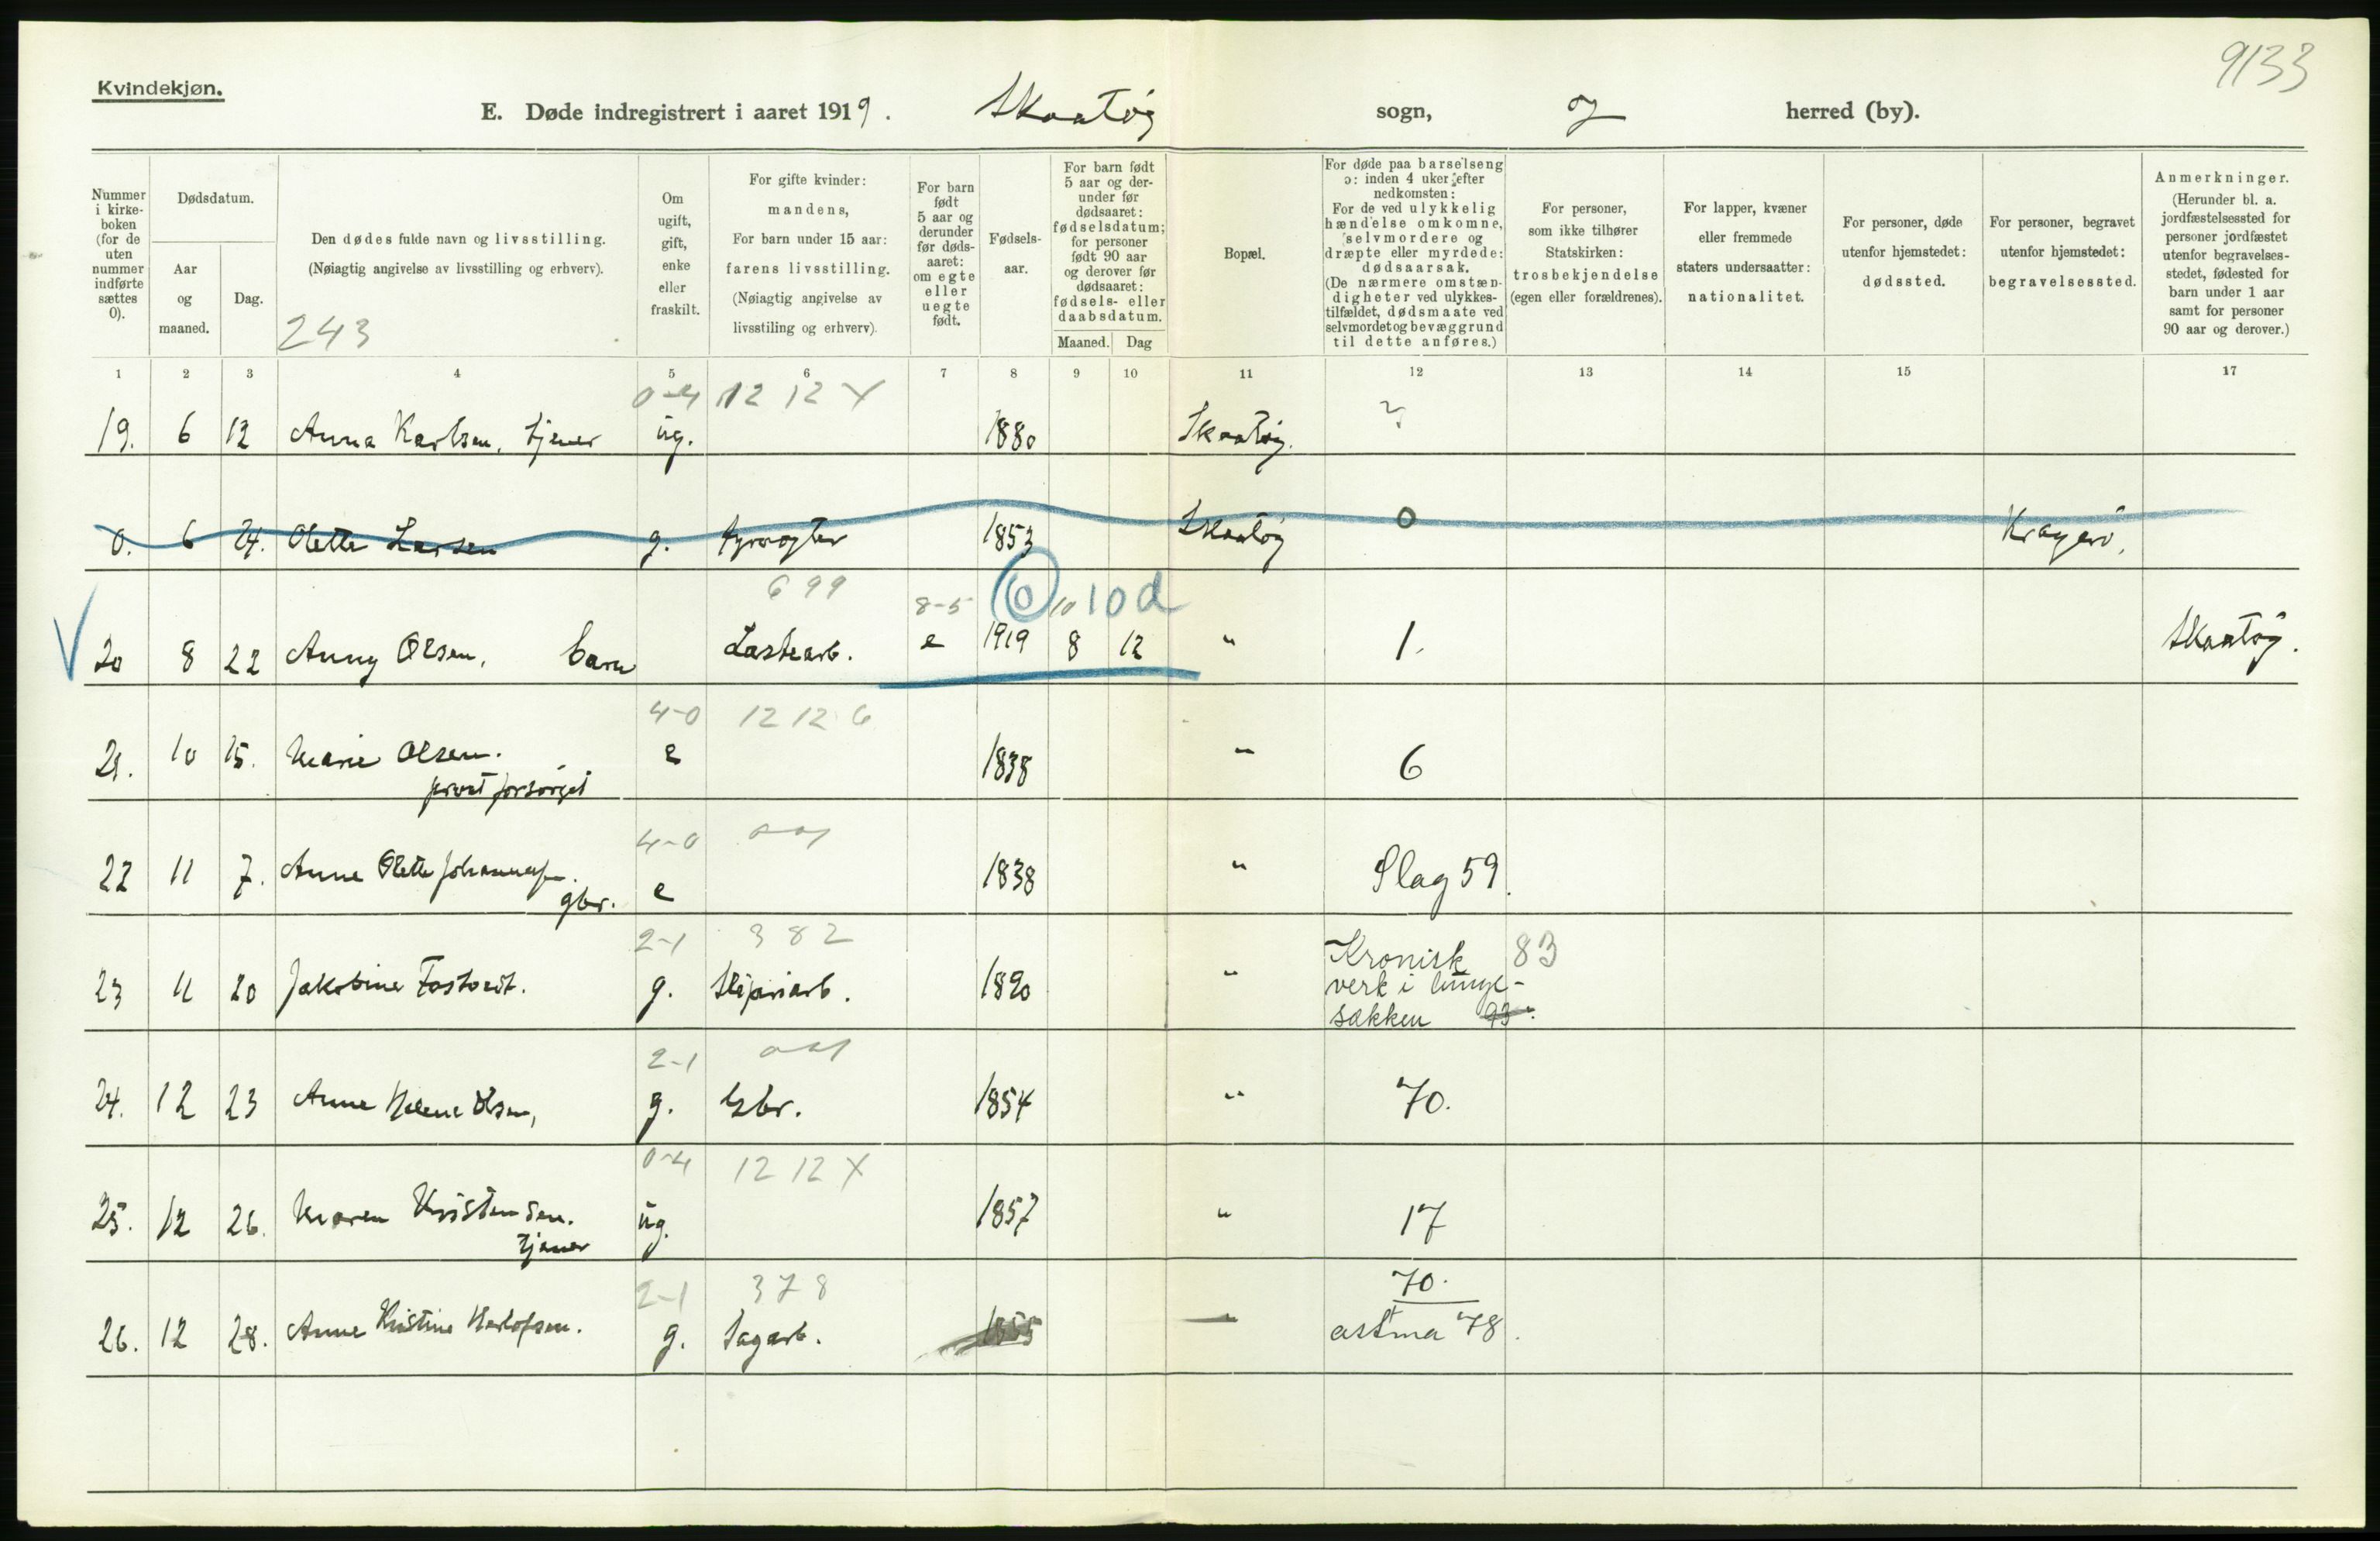 9133
Kvindekjøn.
E. Døde indregistrert i aaret 1919. Skaatøy sogn, herred (by).
Nummer i kirke-boken (for de uten nummer indførte sættes 0).
Dødsdatum.
Aar og maaned.
Dag.
Den dødes fulde navn og livsstilling.
(Nøiagtig angivelse av livsstilling og erhverv).
243
Om ugift, gift, enke eller fraskilt.
For gifte kvinder: mandens,
For barn under 15 aar: farens livsstilling.
(Nøiagtig angivelse av livsstiling og erhverv).
For barn født 5 aar og derunder før døds-aaret: om egte eller uegte født.
Fødsels-aar.
For barn født 5 aar og der-under før dødsaaret: fødselsdatum; for personer født 90 aar og derover før dødsaaret: fødsels- eller daabsdatum.
Maaned. Dag
Bopæl.
For døde paa barselseng ɔ: inden 4 uker efter nedkomsten:
For de ved ulykkelig hændelse omkomne, selvmordere og dræpte eller myrdede: dødsaarsak.
(De nærmere omstæn-digheter ved ulykkes-tilfældet, dødsmaate ved selvmord et og bevæggrund til dette anføres.)
For personer, som ikke tilhører Statskirken: trosbekjendelse (egen eller forældrenes).
For lapper, kvæner eller fremmede staters undersaatter: nationalitet.
For personer, døde utenfor hjemstedet: dødssted.
For personer, begravet utenfor hjemstedet: begravelsessted.
Anmerkninger.
(Herunder bl. a. jordfæstelsessted for personer jordfæstet utenfor begravelses-stedet, fødested for barn under 1 aar samt for personer 90 aar og derover.)
1 2 3 4 5 6 7 8 9 10 11 12 13 14 15 17
0-4 12 12 X
19. 6 12 Anna Karlsen, tjener ug. 1880 Skaatøy. ?
0. 6 24. Olette Larsen g. fyrvogter 1853 Skaatøy 0 Kragerø.
699 8-5 10 10 10d
20 8 22 Anny Olsen, barn Lastearb. e 1919 8 12 " 1. Skaatøy.
4-0 12 12 6
21. 10 15. Marie Olsen. e 1838 " 6
privat forsørget
4-0
22 11 7. Anne Olette e 1838 " Slag 59.
gbr.
2-1 382
23 11 20 Jakobine g. Sliperiarb. 1890 " Kronisk 83
verk i lunge-
sækken 93
2-1
24. 12 23 Anne Helene Olsen, g. Gbr. 1854 " 70.
0-4 12 12 X
25. 12 26. Maren Kristensen. ug. 1857 " 17
tjener
2-1 378 70.
26. 12 28. Anne Kristine Herlofsen. g. Sagarb. 1855 " astma 78.